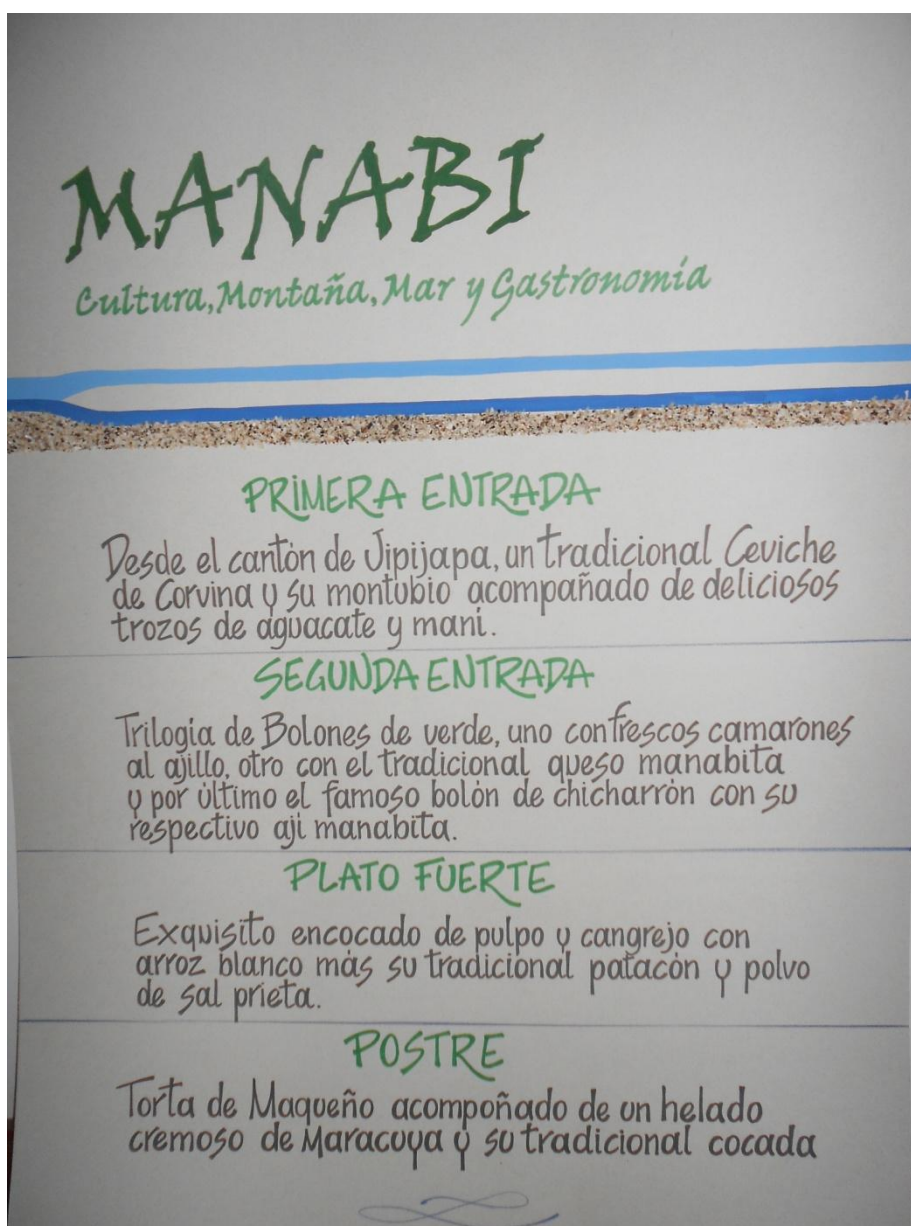 MANABI
Cultura, Montaña, Mar y Gastronomía
PRIMERA ENTRADA
Desde el cantón de Jipijapa, un tradicional Ceviche
de Corvina y su montubio acompañado de deliciosos
trozos de aguacate y maní.
SEGUNDA ENTRADA
Trilogía de Bolones de verde, uno con frescos camarones
al ajillo, otro con el tradicional queso manabita
y por último el famoso bolón de chicharrón con su
respectivo ají manabita.
PLATO FUERTE
Exquisito encocado de pulpo y cangrejo con
arroz blanco más su tradicional patacón y polvo
de sal prieta.
POSTRE
Torta de Maqueño acompoñado de un helado
cremoso de Maracuya y su tradicional cocada